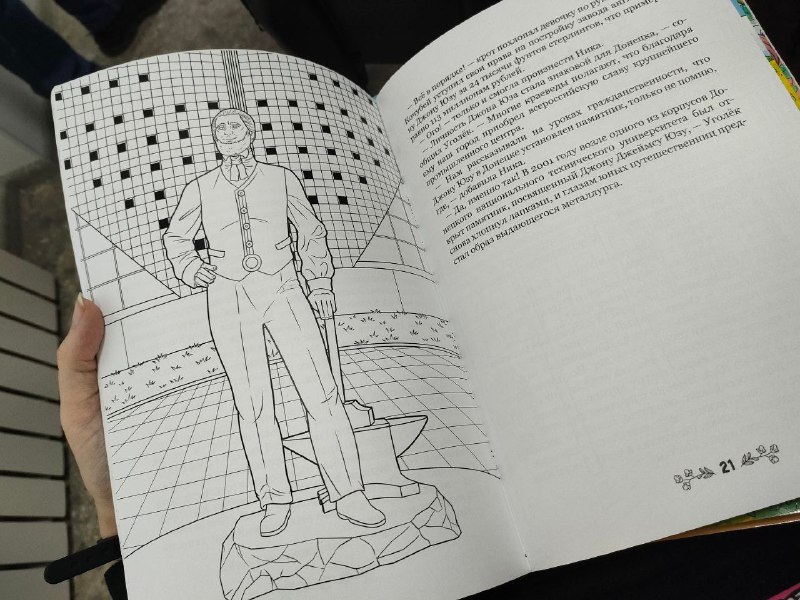 — Всё в порядке! — крот похлопал девочку по ру
Кочубей уступил свои права на постройку завода анг
ну Джону Юзу за 24 тысячи фунтов стерлингов, что пример
равно 1,5 миллионам рублей.
— Ого! — только и смогла произнести Ника.
— Личность Джона Юза стала знаковой для Донецка, — со-
общил Уголёк. — Многие краеведы полагают, что благодаря
ему наш город приобрёл всероссийскую славу крупнейшего
промышленного центра.
— Нам рассказывали на уроках гражданственности, что
Джону Юзу в Донецке установлен памятник, только не помню,
где, — добавила Ника.
— Да, именно так! В 2001 году возле одного из корпусов До-
нецкого национального технического университета был от-
крыт памятник, посвящённый Джону Джеймсу Юзу, — Уголёк
снова хлопнул лапками, и глазам юных путешественниц пред-
стал образ выдающегося металлурга.
21